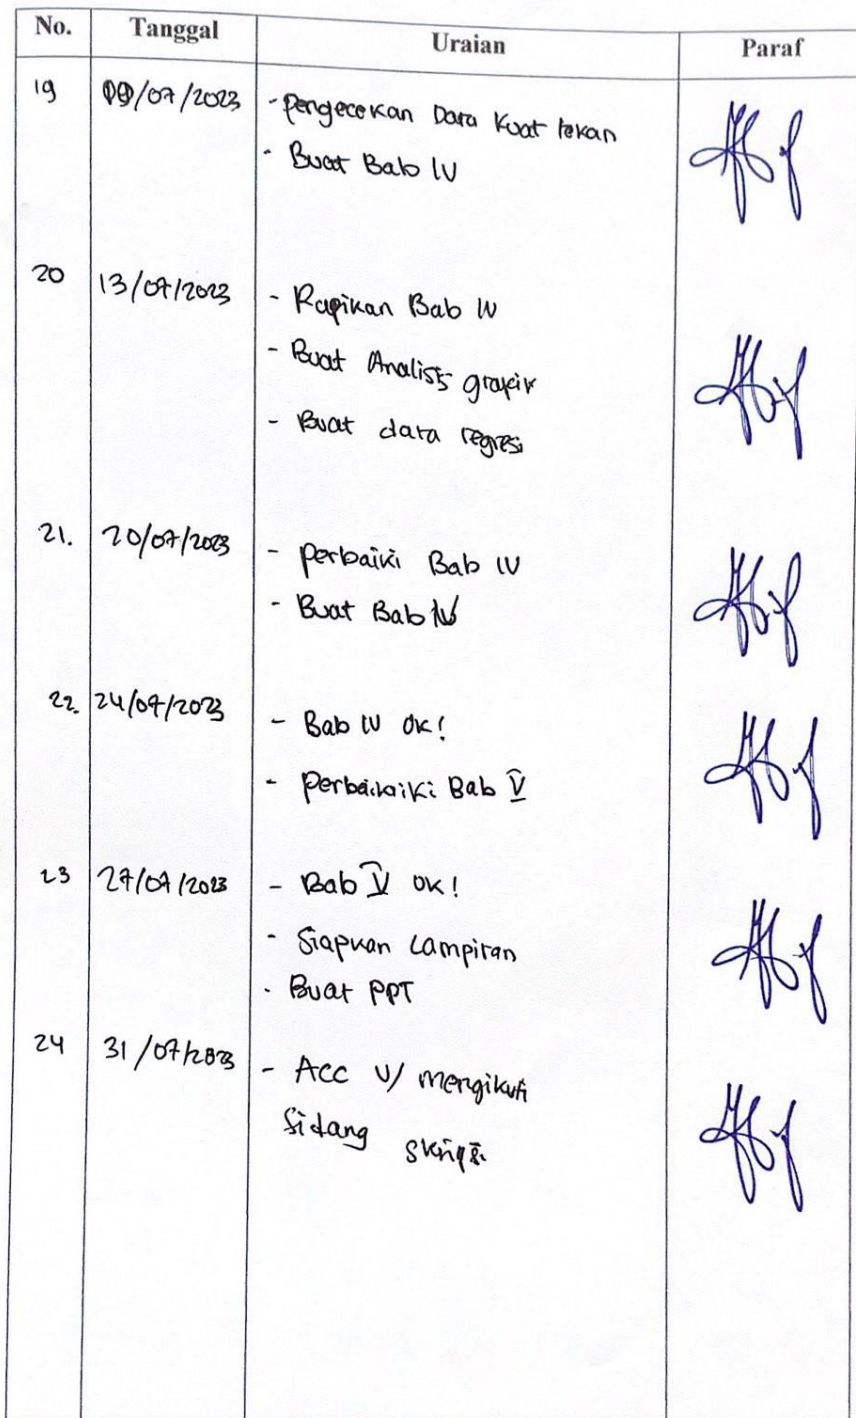 No. Tanggal Uraian Paraf
19 09/07/2023 - Pengecekan Data Kuat tekan
- Buat Bab IV
20 13/07/2023 - Rapikan Bab IV
- Buat Analisis grafik
- Buat data regresi
21. 20/07/2023 - Perbaiki Bab IV
- Buat Bab V
22. 24/07/2023 - Bab IV OK!
- Perbaikaiki Bab V
23 27/07/2023 - Bab V OK!
- Siapkan Lampiran
- Buat PPT
24 31/07/2023 - Acc U/ mengikuti
Sidang Skripsi